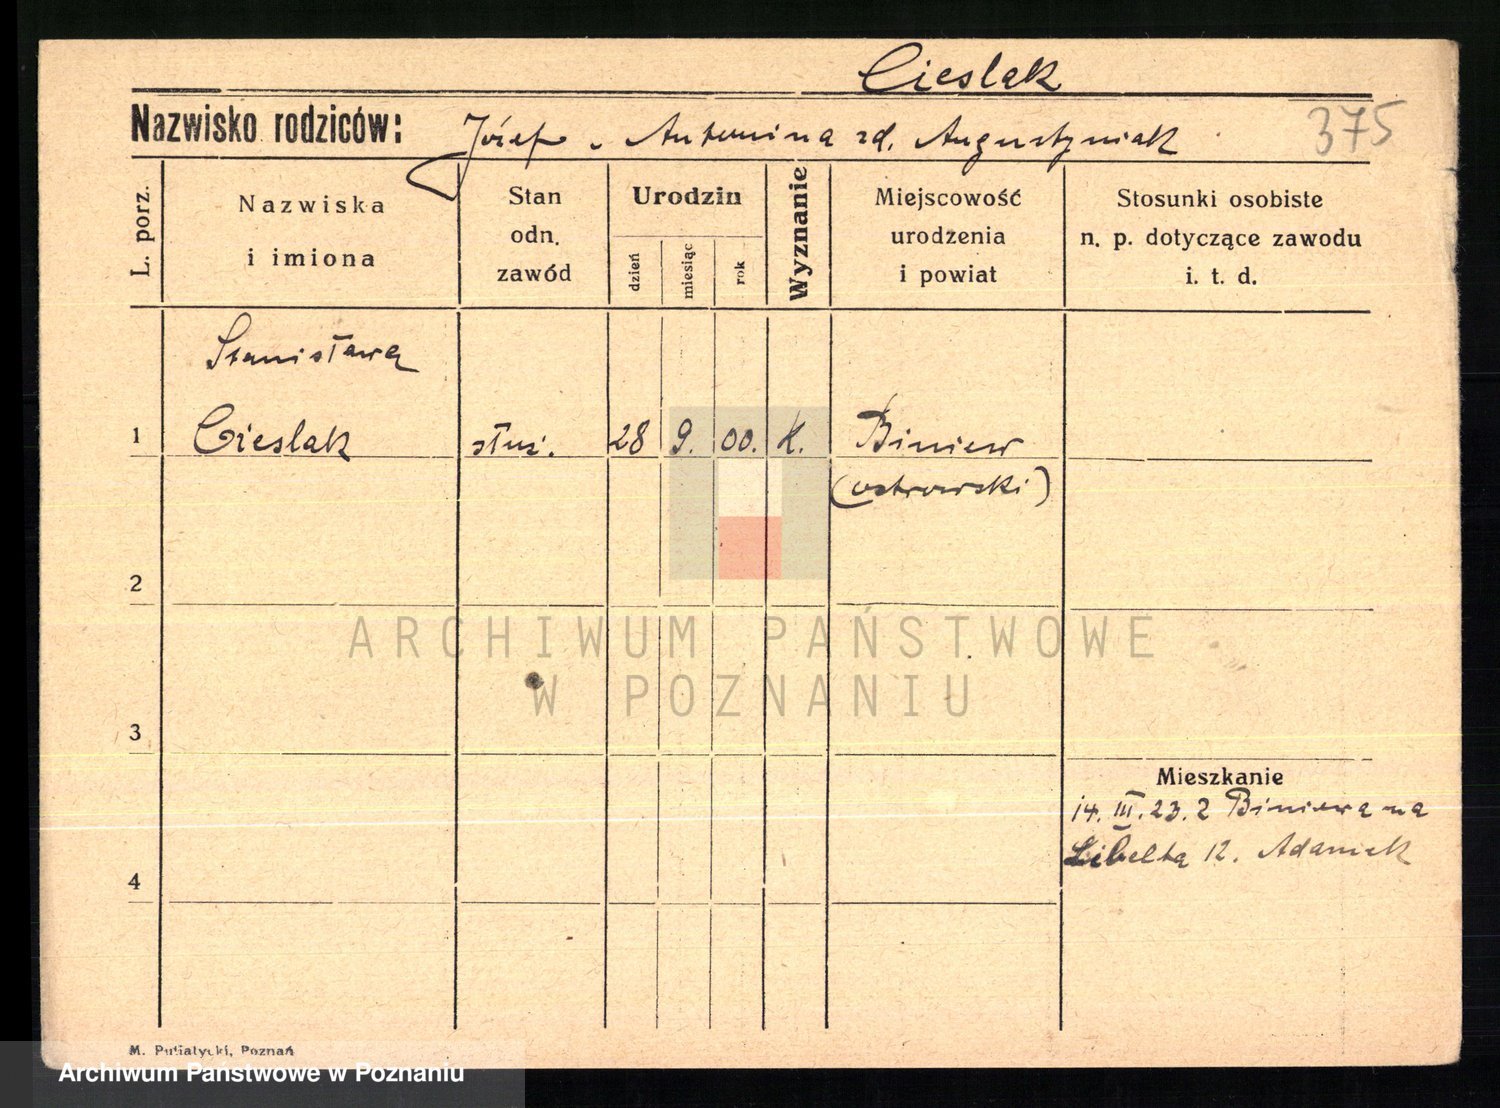 Cieslak
Nazwisko rodziców: Józef i Antonina zd. Augustyniak
375
L. porz.
Nazwiska
i imiona
Stan
odn.
zawód
Urodzin
dzień
miesiąc
rok
Wyznanie
Miejscowość
urodzenia
i powiat
Stosunki osobiste
n. p. dotyczące zawodu
i. t. d.
Stanisława
1 Cieslak służ. 28 9. 00. K. Biniew
(ostrowski)
2
ARCHIWUM PAŃSTWOWE
W POZNANIU
3
Mieszkanie
14. III. 23. z Biniewa na
Libelta 12. Adamek
4
M. Putiatycki, Poznań
Archiwum Państwowe w Poznaniu